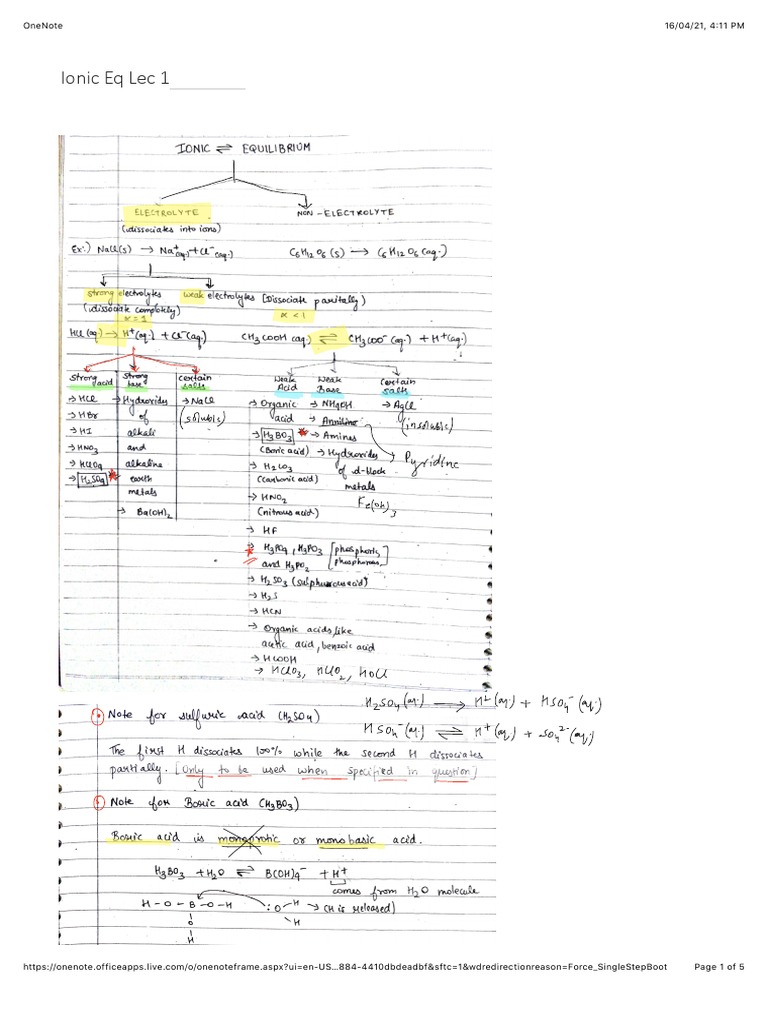 OneNote
16/04/21, 4:11 PM
Ionic Eq Lec 1
IONIC ⇌ EQUILIBRIUM
ELECTROLYTE
NON-ELECTROLYTE
(dissociates into ions)
Ex:) NaCl(s) → Na⁺(aq.) + Cl⁻(aq.)
C₆H₁₂O₆(s) → C₆H₁₂O₆(aq.)
strong electrolytes
weak electrolytes [Dissociate paritally]
(dissociate completely)
α = 1
α < 1
HCl(aq.) → H⁺(aq.) + Cl⁻(aq.)
CH₃COOH(aq.) ⇌ CH₃COO⁻(aq.) + H⁺(aq.)
Strong acid
→ HCl
→ HBr
→ HI
→ HNO₃
→ HClO₄
→ H₂SO₄ *
Strong base
→ Hydroxides
of
alkali
and
alkaline
earth
metals
→ Ba(OH)₂
certain salts
→ NaCl
(soluble)
Weak Acid
→ Organic
acid
→ H₃BO₃ *
(Boric acid)
→ H₂CO₃
(carbonic acid)
→ HNO₂
(nitrous acid)
→ HF
→ H₃PO₄, H₃PO₃ [phosphoric,
and H₃PO₂ phosphorous,]
→ H₂SO₃ (sulphurous acid)
→ H₂S
→ HCN
→ Organic acids, like
acetic acid, benzoic acid
→ HCOOH
→ HClO₃, HClO₂, HOCl
Weak Base
→ NH₄OH
→ Anniline
→ Amines
→ Hydroxides
of d-block
metals
Fe(OH)₃
Pyridine
Certain salts
→ AgCl
(insoluble)
H₂SO₄(aq.) → H⁺(aq.) + HSO₄⁻(aq.)
Note for sulfuric acid (H₂SO₄)
HSO₄⁻(aq.) ⇌ H⁺(aq.) + SO₄²⁻(aq.)
The first H dissociates 100% while the second H dissociates
partially. [Only to be used when specified in question]
Note for Boric acid (H₃BO₃)
Boric acid is monoprotic or monobasic acid.
H₃BO₃ + H₂O ⇌ B(OH)₄⁻ + H⁺
comes from H₂O molecule
H-O-B-O-H :O-H → (H is released)
O H
H
https://onenote.officeapps.live.com/o/onenoteframe.aspx?ui=en-US…884-4410dbdeadbf&sftc=1&wdredirectionreason=Force_SingleStepBoot
Page 1 of 5